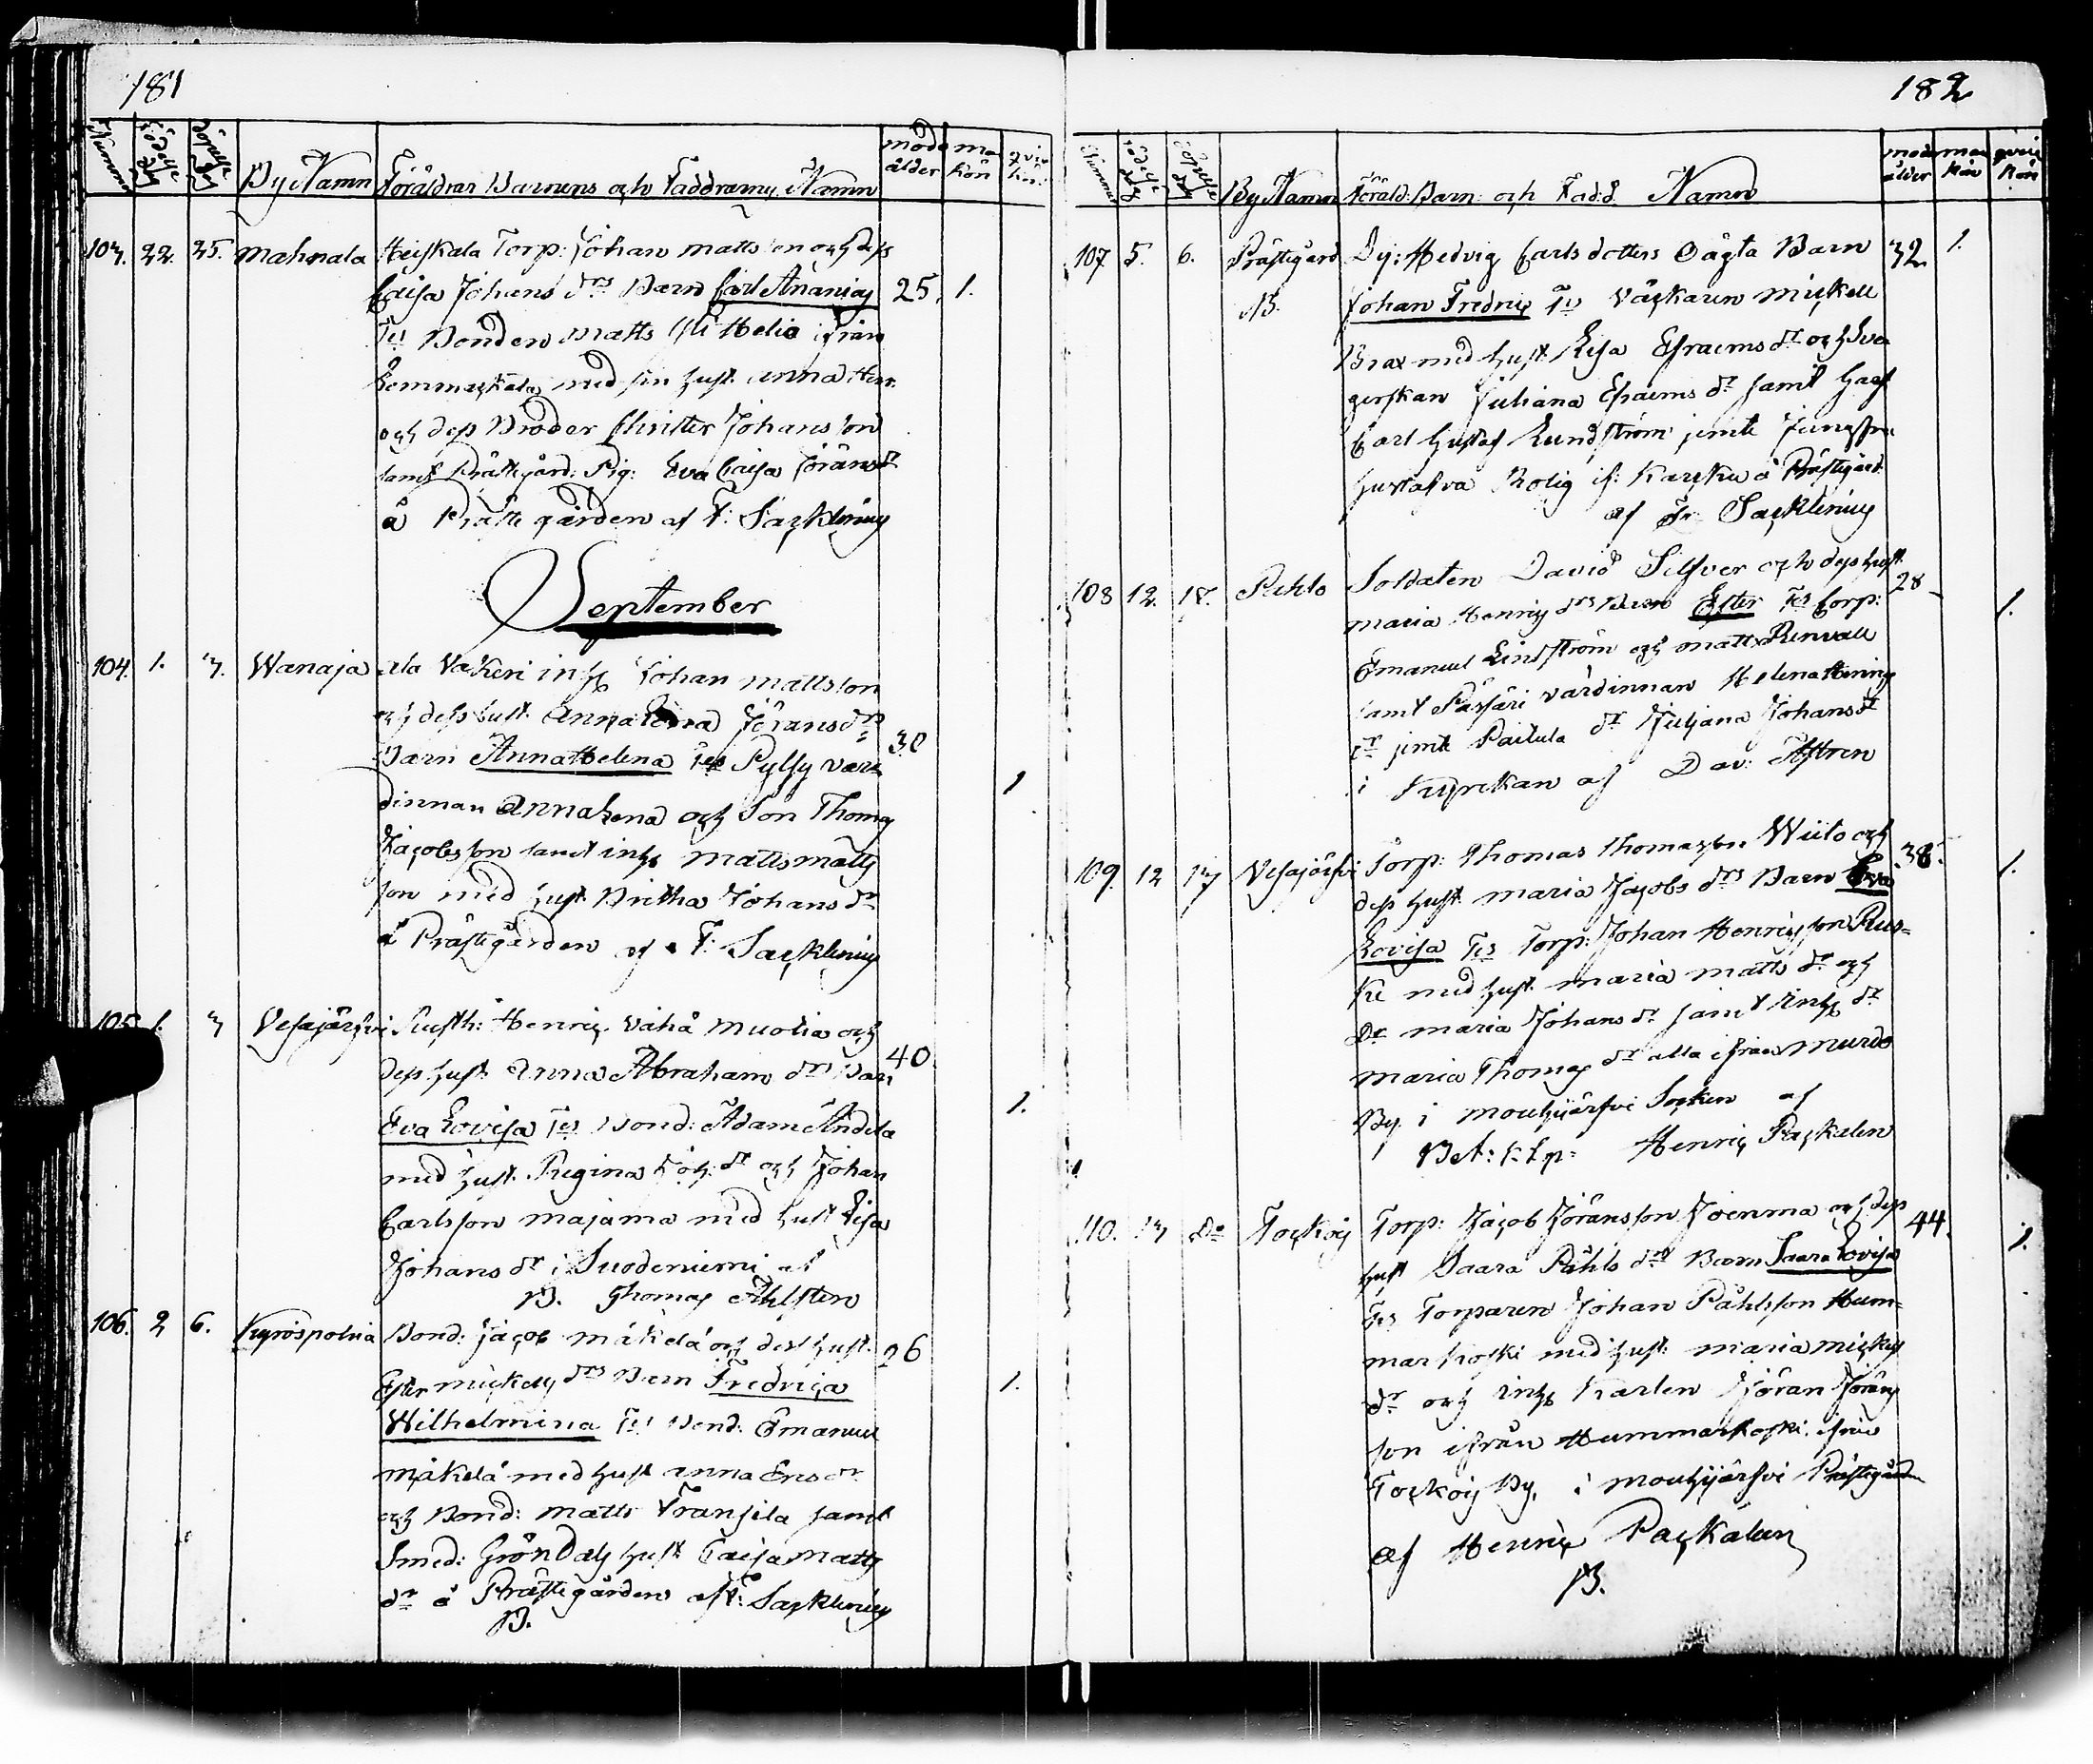 181
Nummer Födelse dag Döpelse dag By Namn Föräldrar Barnens och Faddrarnes Namn mod ålder ma kön qvin kön
103. 22. 25. Mahnala Heiskala Torp: Johan Mattsson och dess
Caisa Johans drs Barn Carl Ananias 25. 1.
Ts Bonden Matts Yli Helio ifrån
med sin hust. Anna Hen.
och dess Broder Christer Johansson
samt Prästegård: Pig: Eva Caisa Jöransdr
å Prästegården af F: Sacklinius
September
104. 1. 3. Wanaja ala Vakeri inhs Johan Mattsson
och dess hust. Anna Lena Jörans drs 30
Barn Anna Helena Ts Pylsy vär
dinnan Anna Lena och Son Thomas 1
Jacobsson samt inhs Matts Matts
son med hust Britha Johans dr
å Prästegården af F: Sacklinius
105. 1. 3 Vesajärfvi Susth: Henric Vähä Muolia och
dess hust Anna Abrahams drs Barn 40.
Eva Lovisa Ts Bond: Adam Andela 1.
med hust. Regina dr och Johan
Carlsson Majama med hust Lisa
Johans dr i Suodeniemi af
B. Thomas Ahlsten
106. 2 6. Kyröspohia Bond: Jacob Mäkelä och dess hust. 26
Ester Mickels drs Barn Fredrica 1.
Wilhelmina Ts Bond: Emanuel
Mäkelä med hust Anna Ers dr
och Bond: Matts Fransila samt
Smed: Gröndals hust Caisa Matts
dr å Prästegården af F: Sacklinius
B.
182
Nummer Födelse dag Döpelse dag By Namn Föräld: Barn: och Fadd. Namn mod ålder man kön qvin kön
107 5. 6. Prästegård Pig: Hedvig Carlsdotters Oägta Barn 32 1.
B. Johan Fredric Ts Väckaren Mickell
Brax med hust. Lisa Efraems dr och Sva
gerskan Juliana Efraems dr samt
Carl Gustaf Lundström jemte Jungfru
Gustafva Rolig if: Karsku å Prästegård
af Fr Sacklinius
108 12. 18. Pehlo Soldaten David Silfver och dess hust 28
Maria Henrics drs Barn Ester Ts Corp: 1.
Emanuel Lindström och Matts Renvall
samt värdinnan Helena Henrics
dr jemte Paitula dr Juliana Johans dr
i Kyrckan af Dav: Aftren
109. 12 13 Vesajärfvi Torp: Thomas Thomasson Wiito och 38. 1.
dess hust Maria Jacobs drs Barn Eva
Lovisa Ts Torp: Johan Henricsson Rus-
ke med hust Maria Matts dr och
Dr Maria Johans dr samt inhs dr
Maria Thomas dr alla ifrån Murdo
By i Mouhijärfvi Socken af
Bet: K:lp: Henric Packalen
110. 13 Do Fockois Torp: Jacob Jöransson Joenma och dess 44. 1.
hust Saara Påhls drs Barn Saara Lovisa
Ts Torparen Johan Påhlsson Hum-
markoski med hust: Maria Mickels
dr och inhs Karlen Jöran Jörans
son ifrån Hummarkoski, ifrån
Fockois By, i Mouhijärfvi Prästegården
af Henric Packalen
B.